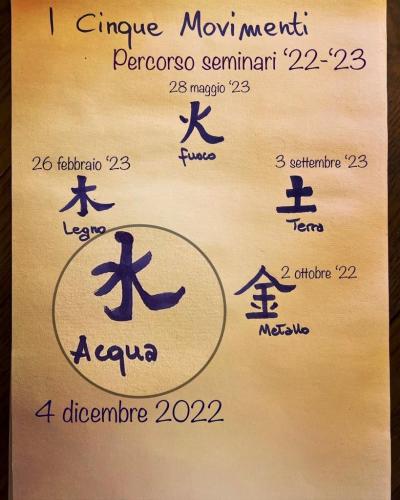 I Cinque Movimenti
Percorso seminari '22-'23
28 maggio '23
火
fuoco
26 febbraio '23
木
Legno
3 settembre '23
土
Terra
水
Acqua
2 ottobre '22
金
Metallo
4 dicembre 2022